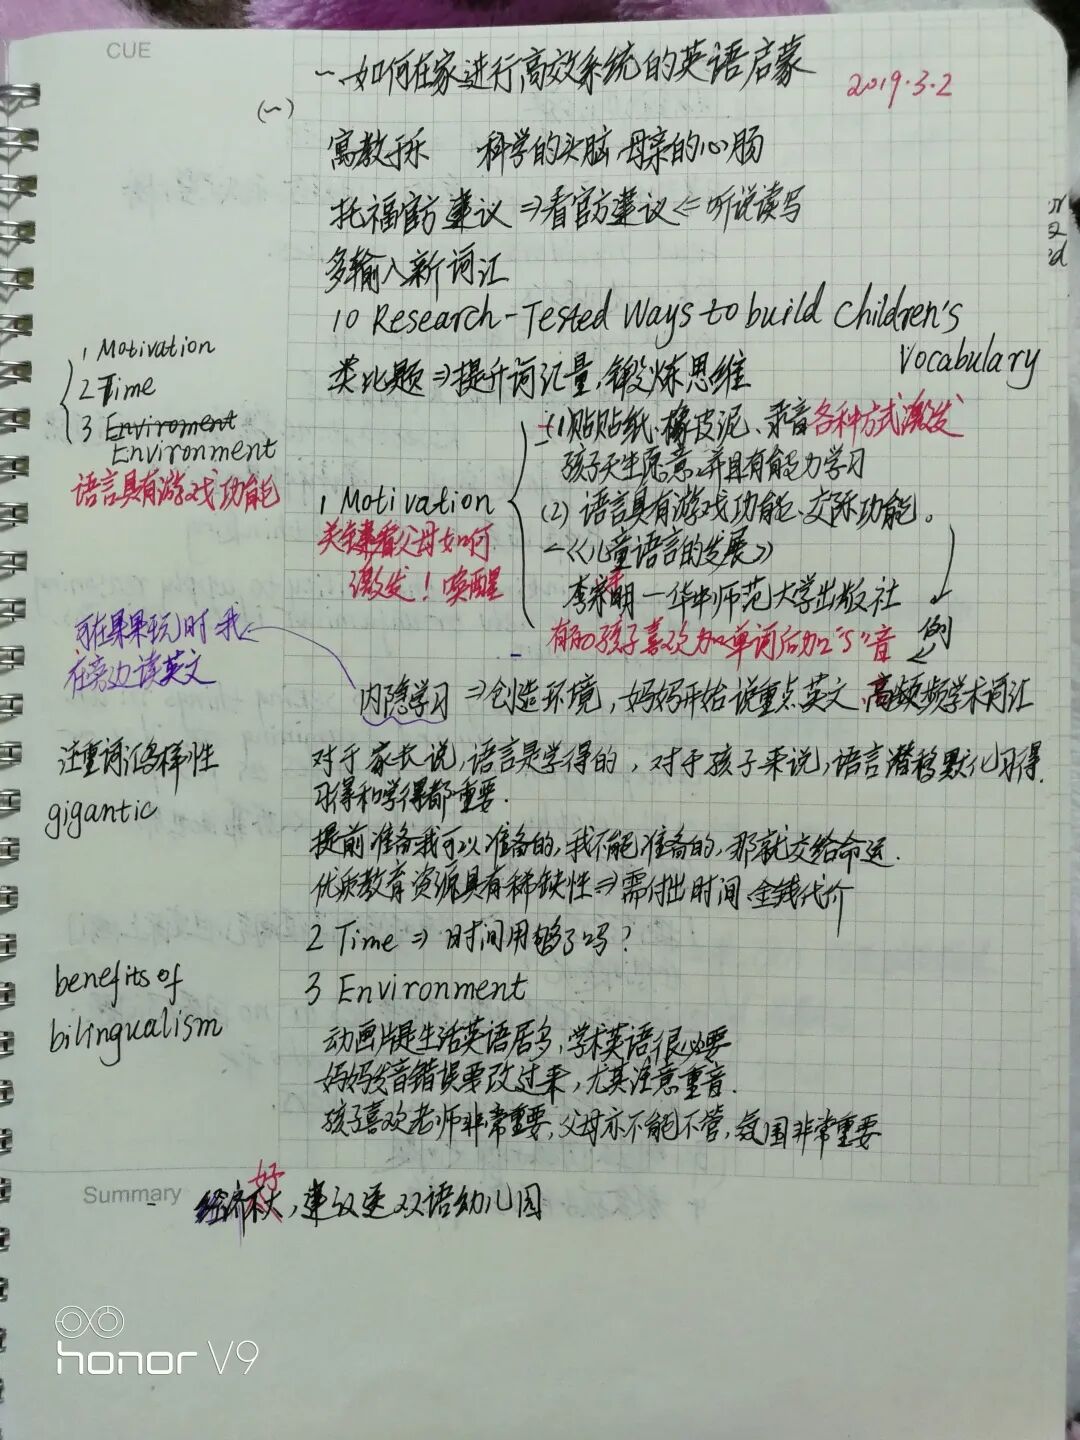 CUE
一.如何在家进行高效系统的英语启蒙
2019.3.2
(一)
寓教于乐 科学的头脑,母亲的心肠
托福官方建议⇒看官方建议⇐听说读写
多输入新词汇
10 Research-Tested Ways to build Children's
Vocabulary
类比题⇒提升词汇量,锻炼思维
1 Motivation
2 Time
3 Enviroment
Environment
语言具有游戏功能
1 Motivation
关键看父母如何
激发!唤醒
(1)贴贴纸、橡皮泥、录音各种方式激发
孩子天生愿意,并且有能力学习
(2) 语言具有游戏功能、交际功能。
一《儿童语言的发展》
李宇明一华中师范大学出版社
有的孩子喜欢加单词后加"s"音
例
可在果果玩时我
在旁边读英文
内隐学习⇒创造环境,妈妈开始说重点英文,高频学术词汇
注重词汇多样性
gigantic
对于家长说,语言是学得的,对于孩子来说,语言潜移默化习得.
习得和学得都重要.
提前准备我可以准备的,我不能准备的,那就交给命运.
优质教育资源具有稀缺性⇒需付出时间、金钱代价
2 Time ⇒ 时间用够了吗?
3 Environment
benefits of
bilingualism
动画片是生活英语居多,学术英语很必要
妈妈发音错误要改过来,尤其注意重音.
孩子喜欢老师非常重要,父母亦不能不管,氛围非常重要
Summary
经济好,建议送双语幼儿园
honor V9